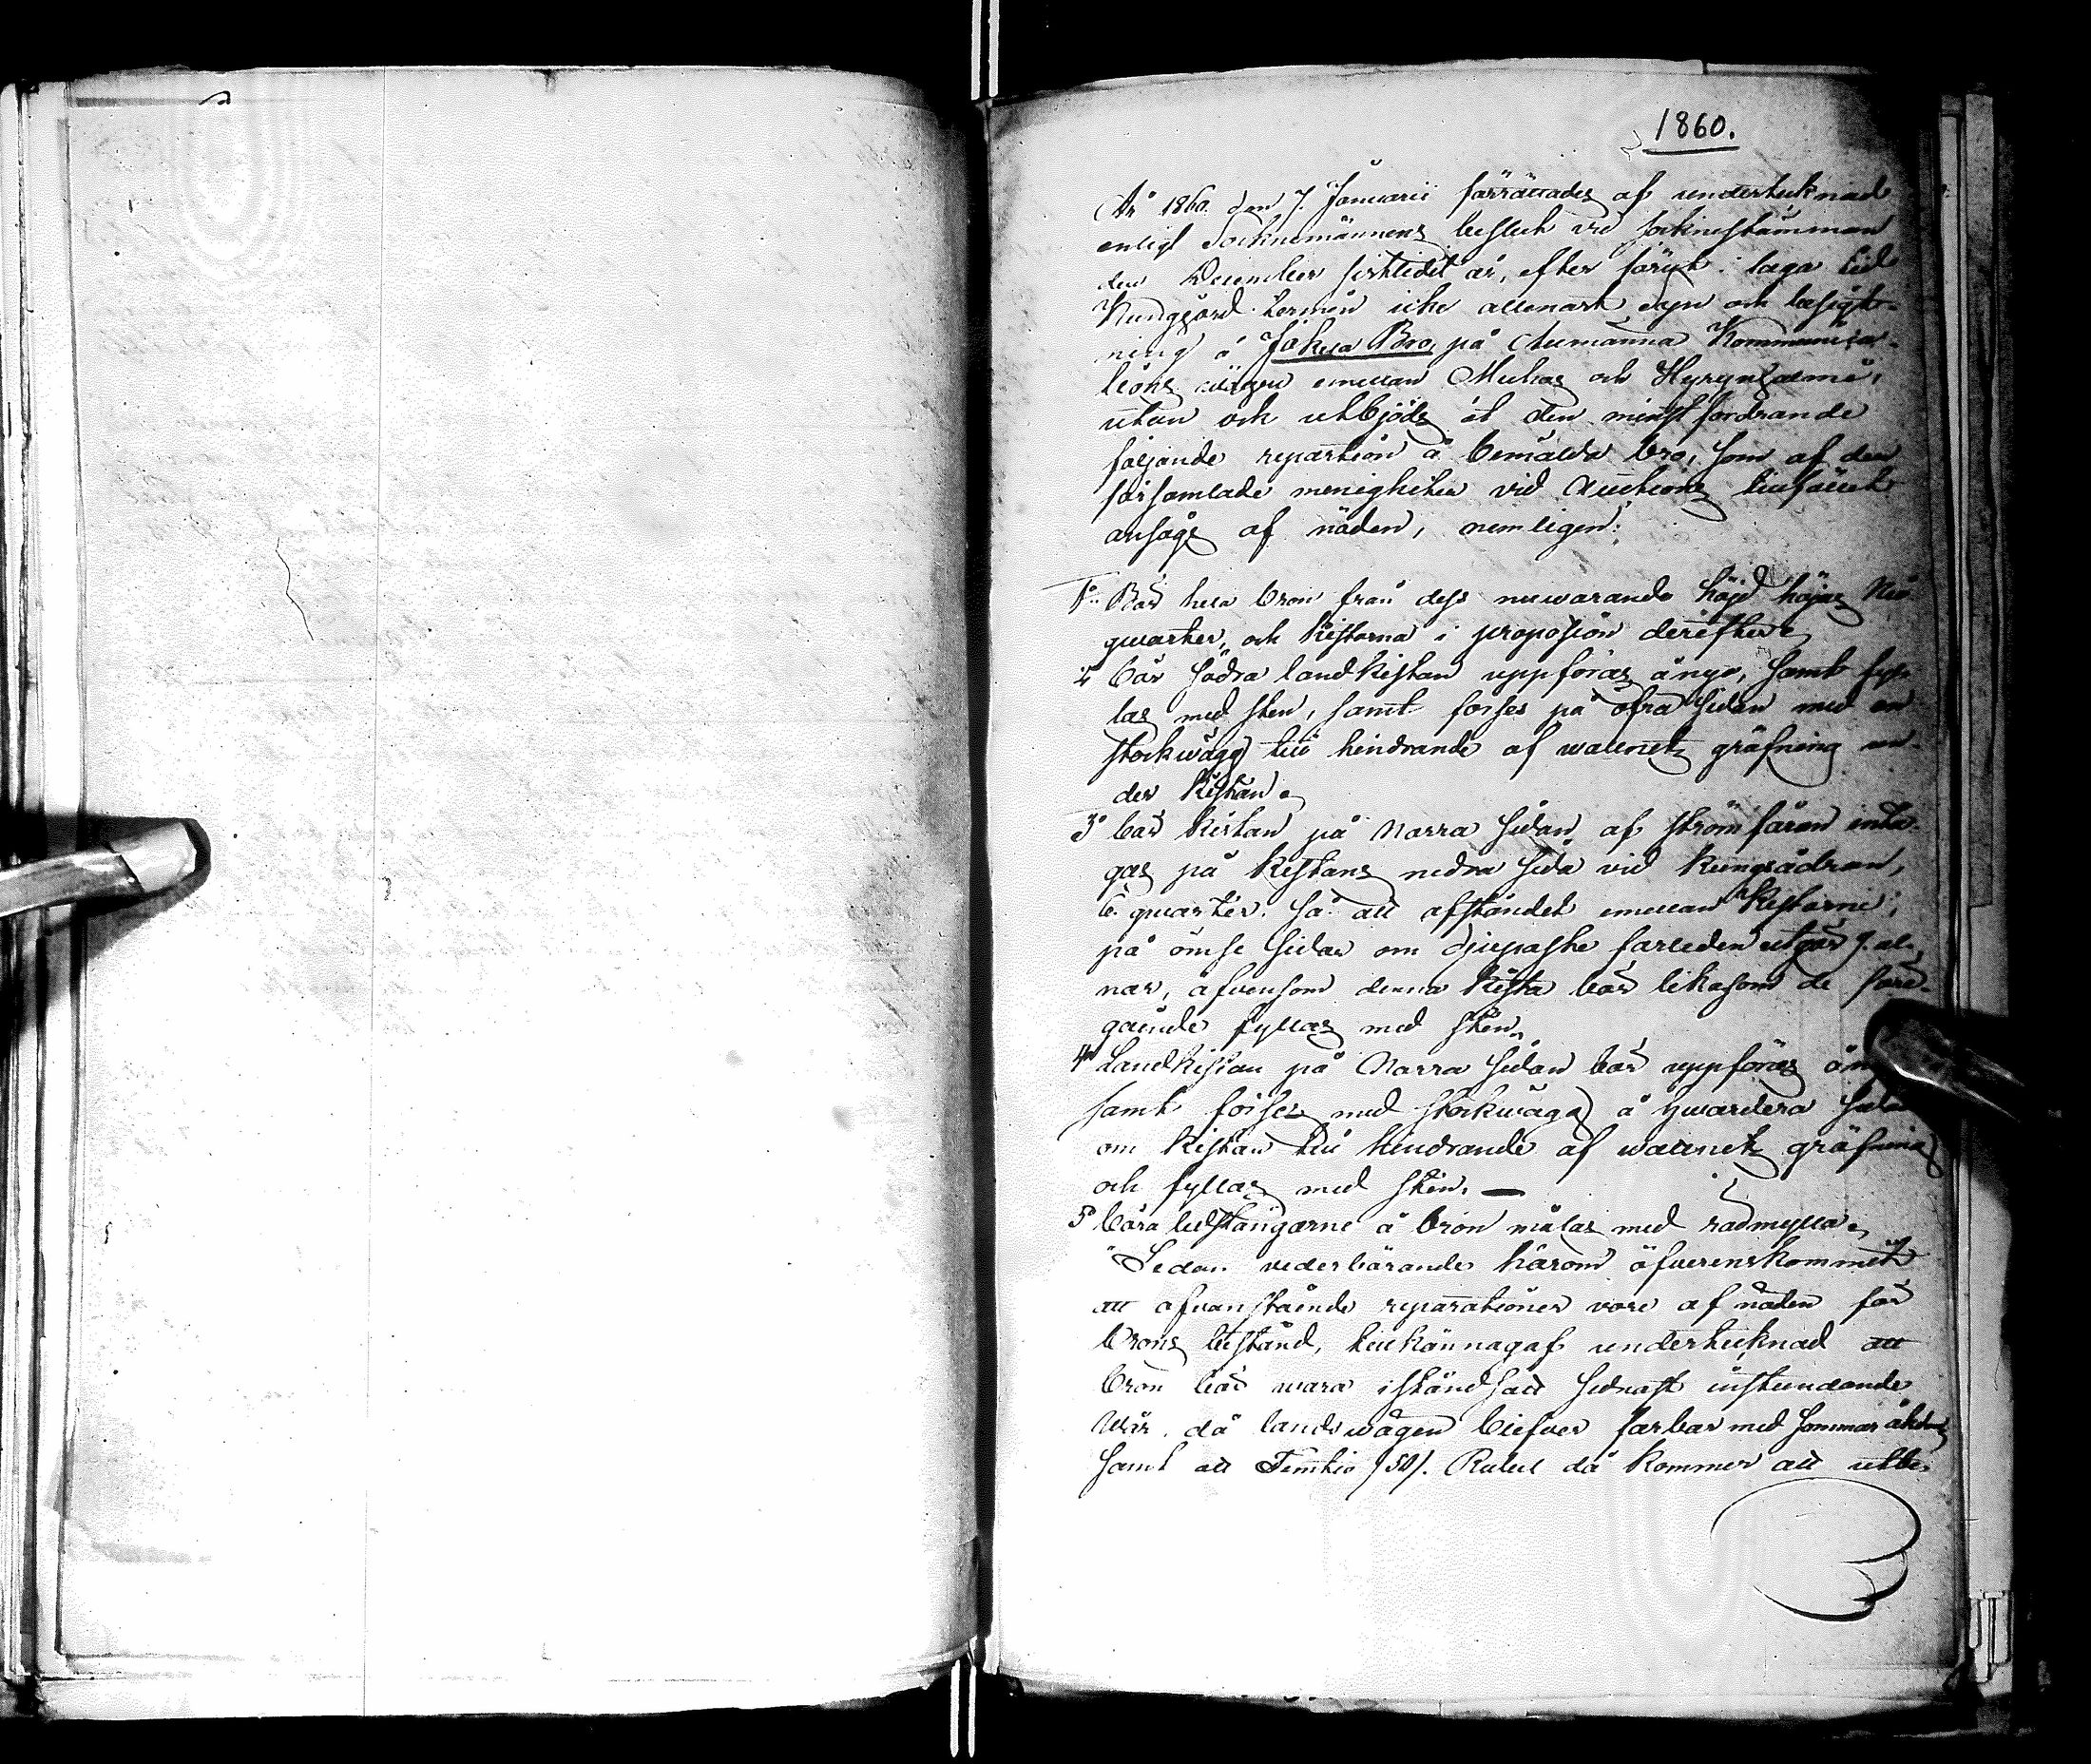 1860.
År 1860. den 7. Januarii förrättades af undertecknad
enligt Socknemännens beslut vid socknestämman
den December sistledit år, efter föryt i laga tid
Kundgjord termin icke allenast syn och besigt-
ning å Jokela Bro, på Allmänna Kommunica-
tions vägen emellan Muhos och Hyrynsalmi,
utan och utbjöds åt den minstfordrande
följande repartion å bemälda bro, som af den
församlade menigheten vid Auctions tillfället
ansågs af nöden, nemligen:
1o Bör hela bron från dess nuvarande höjd höjas
qvarter, och kistorna i proposion derefter
2o bör Södra landkistan uppföras å nyo, samt fyl-
las med sten, samt förses på öfra sidan med en
stockvägg till hindrande af wattnets gräfning un-
der Kistan.
3o bör kistan på Norra sidan af strömfåran inta-
gas på Kistans nedra sida vid kungsådran,
6. qvarter. så att afståndet emellan Kistorne
på ömse sidor om djupaste farleden utgör 9. al-
nar, äfvensom denna Kista bör likasom de före-
gående fyllas med sten.
4o Landkistan på Norra sidan bör uppföras
samt förses med stockvägg å hvardera
om Kistan till hindrande af wattnets gräfning
och fyllas med sten. —
5o böra ledstängerne å bron målas med rödmylla.
Sedan vederbörande härom öfverenskommit
att ofvanstående reparationer vore af nöden för
brons bestånd, tillkännagaf undertecknad att
bron bör wara iståndsatt sednast instundande
Wår, då landswägen blefver farbar med sommar åkdon
samt att Femtio /50/. Rubel då kommer att utbe-